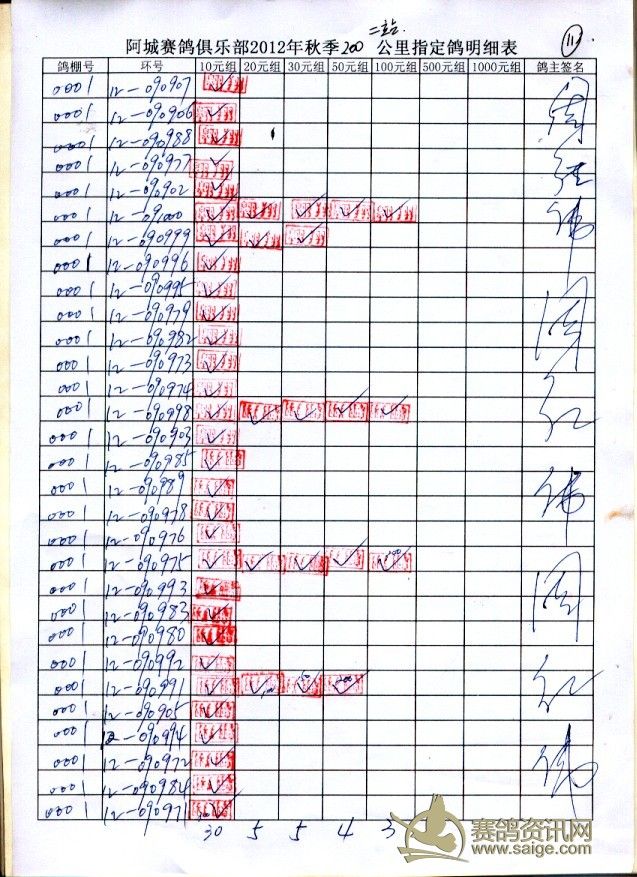 二站
阿城赛鸽俱乐部2012年秋季200公里指定鸽明细表
11
鸽棚号 环号 10元组 20元组 30元组 50元组 100元组 500元组 1000元组 鸽主签名
0001 12-090907
0001 12-090906
0001 12-090988
0001 12-090977
0001 12-090902
0001 12-091000
0001 12-090999
0001 12-090996
0001 12-090995
0001 12-090979
0001 12-090982
0001 12-090973
0001 12-090974
0001 12-090998
0001 12-090903
0001 12-090985
0001 12-090989
0001 12-090978
0001 12-090976
0001 12-090975
0001 12-090993
0001 12-090983
0001 12-090980
0001 12-090992
0001 12-090991
0001 12-090905
0001 12-090994
0001 12-090972
0001 12-090984
0001 12-090971
30 5 5 4 3
赛鸽资讯网
www.saige.com